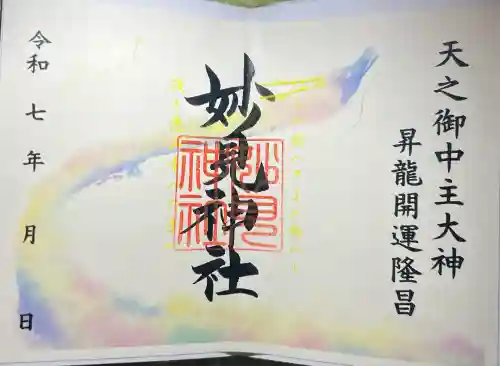 天之御中主大神
昇龍開運隆昌
妙見神社
妙見
神社
令和七年 月 日